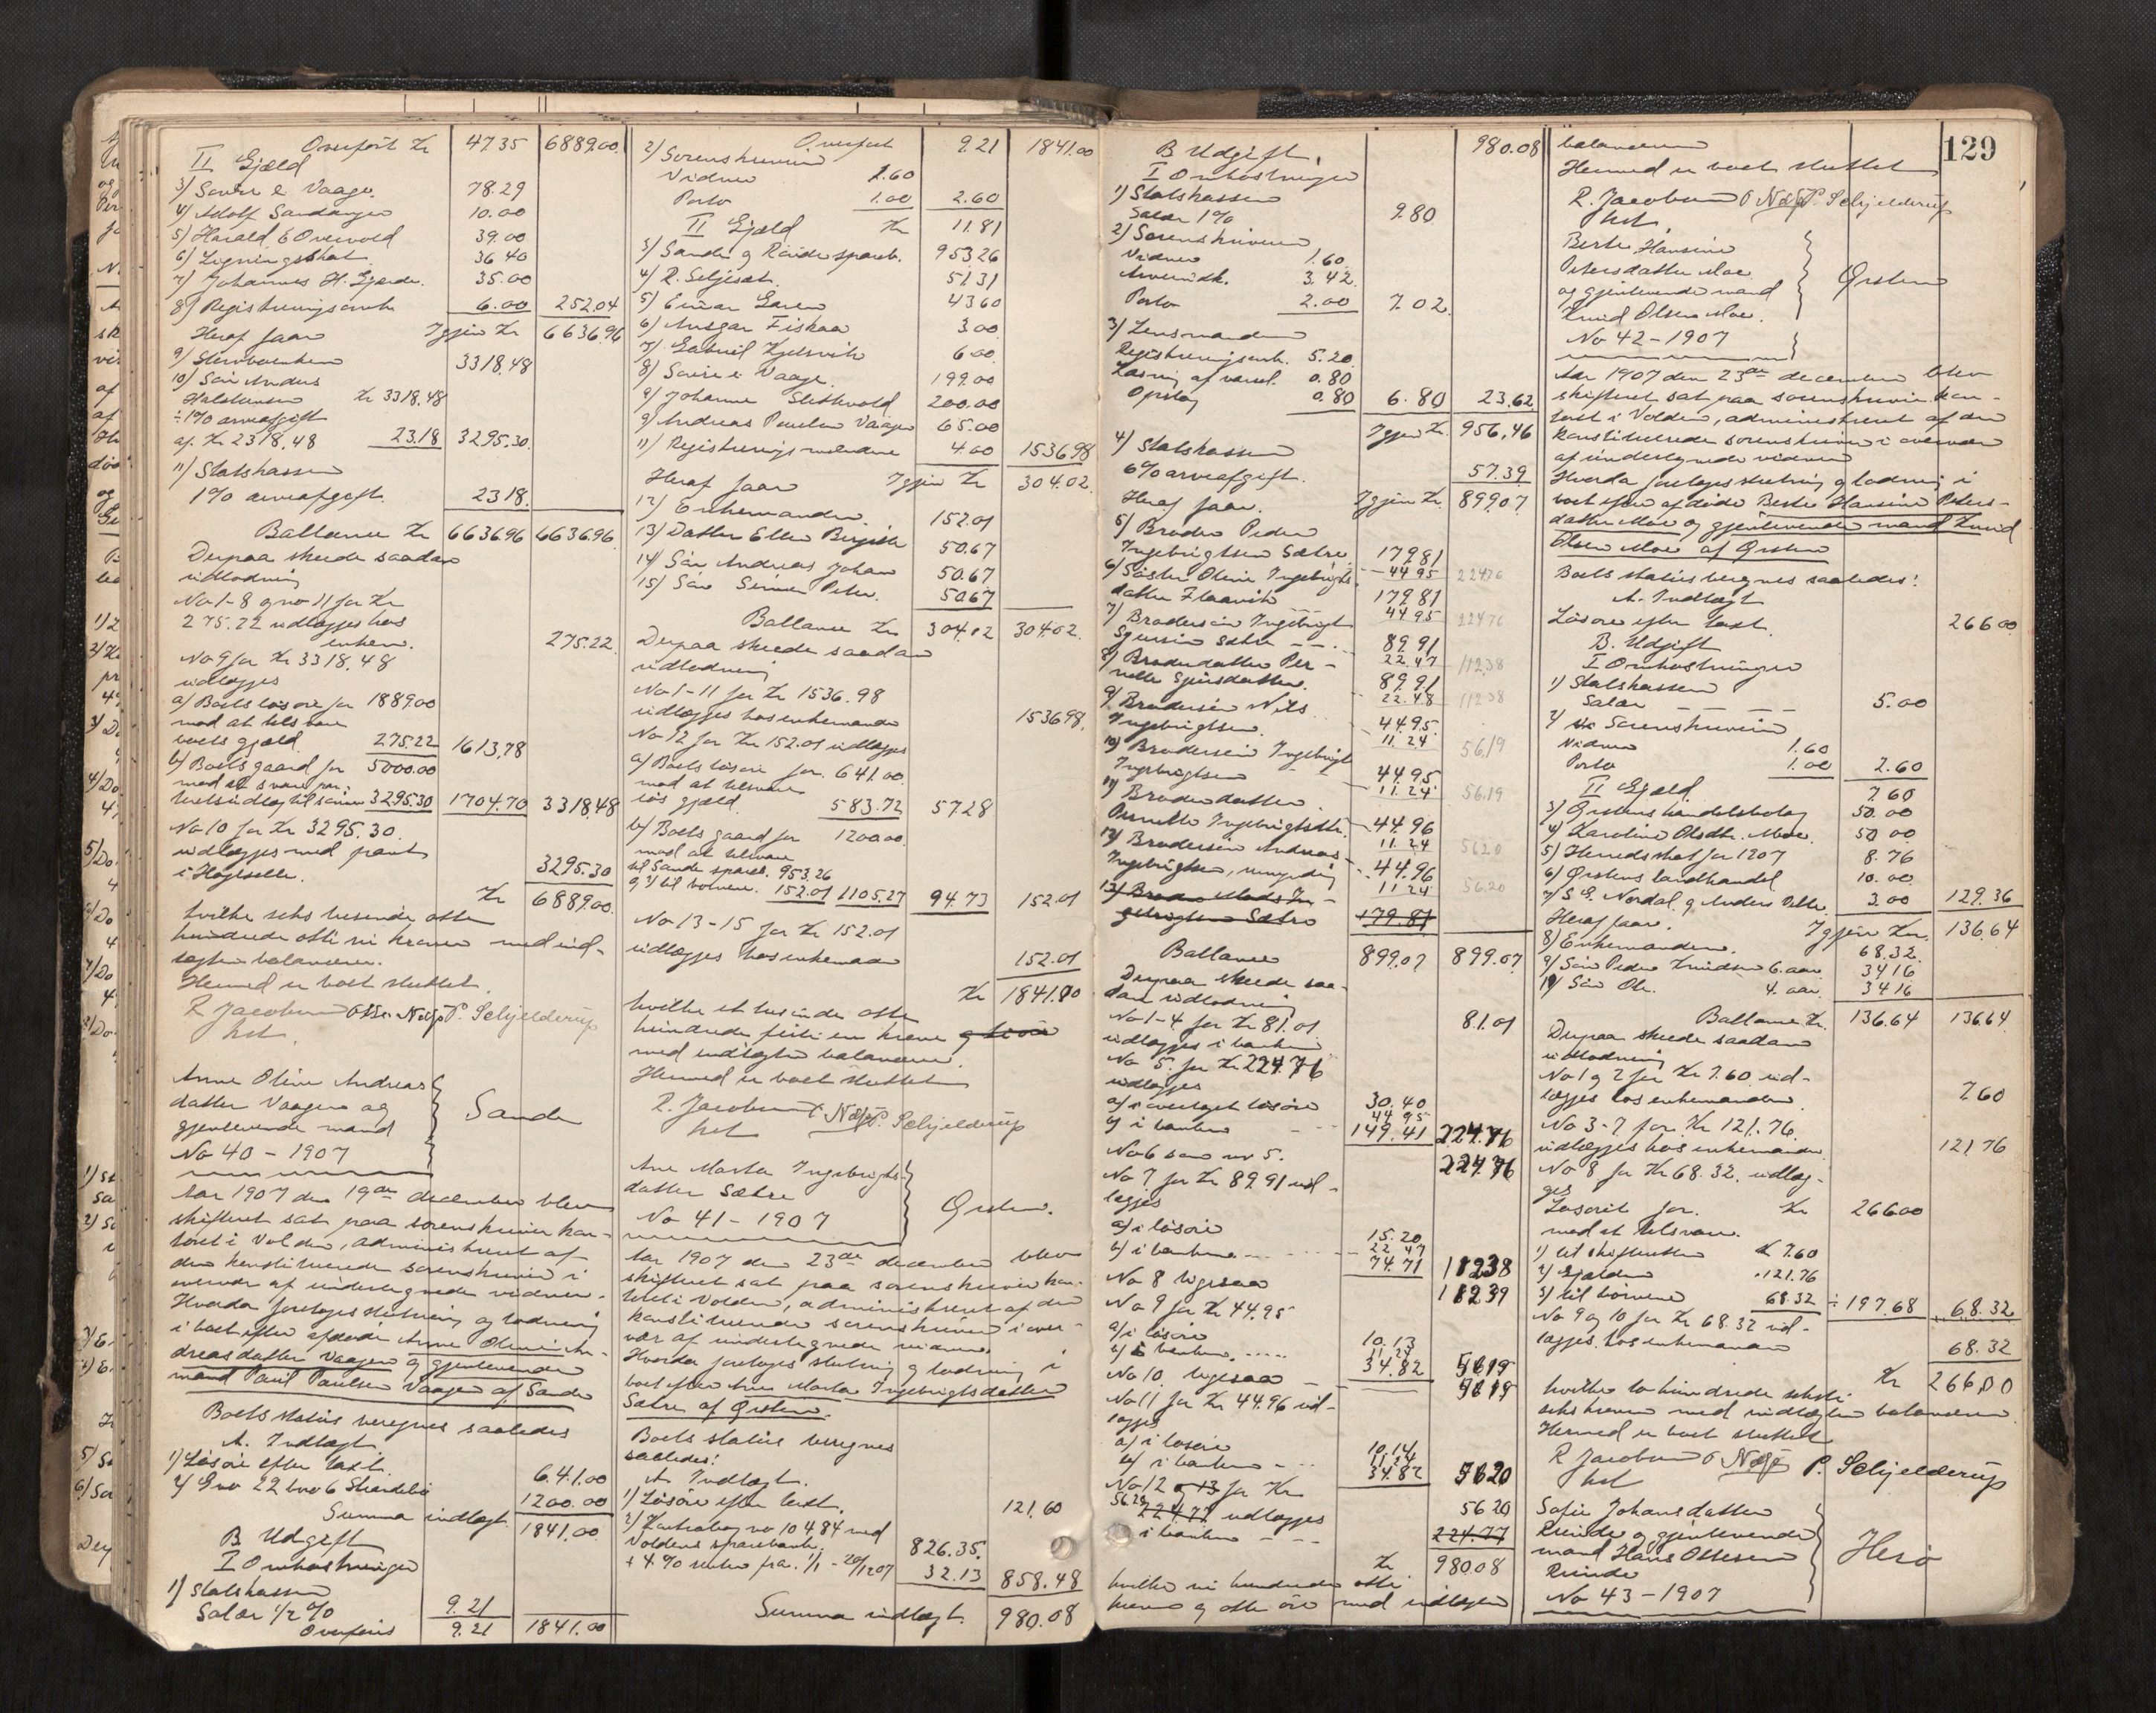 Overført Kr 47.35 6889.00
II Gjæld
3) Sævre & Vaage. 78.29
4) Adolf Sandanger 10.00
5) Harald E Overvold 39.00
6) Ligningsskat 36.40
7) Johannes H. Gjerde. 35.00
8) Registreringsomk 6.00 252.04
Igjen Kr 6636.96
Heraf faar
9) Stervboenken 3318.48
10) Søn Anders
Kr 3318.48
÷ 1% arveafgift
af Kr 2318.48 23.18 3295.30
11) Statskassen
1% arveafgift. 23.18
Ballance Kr 6636.96 6636.96
Derpaa skeede saadan
udlodning
No 1-8 og no 11 for Kr
275.22 udlægges hos
enken. 275.22
No 9 for Kr 3318.48
udlægges
a) Boets løsøre for 1889.00
mod at tilsvare
boets gjæld. 275.22 1613.78
b) Boets gaard for 5000.00
mod at svare pan-
teudlæg til sønnen 3295.30 1704.70 3318.48
No 10 for Kr 3295.30
udlægges med pant
3295.30
Kr 6889.00
hvilke seks tusinde otte
hundrede otti ni kroner med ud-
lægten balancerer.
Hermed er boet sluttet.
R Jacobsen P. Schjelderup
kst.
Anne Oline Andreas
datter Vaagen og
gjenlevende mand
No 40 - 1907
Sande
Aar 1907 den 19de december blev
skifteret sat paa sorenskriver kon-
toret i Volden, administreret af
den konstituerede sorenskriver i
overvær af undertegnede vidner.
Hvorda foretoges slutning og lodning
i boet efter afdøde Anne Oline An-
dreasdatter Vaagen og gjenlevende
mand Paul Paulsen Vaagen af Sande
Boets status beregnes saaledes
A. Indtægt
1) Løsøre efter taxt. 641.00
2) Gno 22 bno 6 1200.00
Summa indtægt 1841.00
B Udgift
I Omkostninger
1) Statskassen
Salær 1/2 % 9.21
Overføres 9.21 1841.00
Overført 9.21 1841.00
2) Sorenskriveren
Vidner 1.60
Porto 1.00 2.60
Kr 11.81
II Gjæld
3) Sande og Rovde spareb. 953.26
4) R. Seljeset. 51.31
5) Einar Garen 43.60
6) Ansgar Fiskaa 3.00
7) Gabriel Kjelsvik 6.00
8) Sævre & Vaage. 199.00
9) Johanne Slettevold 200.00
9) Andreas Paulsen Vaagen 65.00
11) Registreringsvidnerne 4.00 1536.98
Igjen Kr 304.02
Heraf faar
12) Enkemanden. 152.01
13) Datter Ellen Bergitte 50.67
14) Søn Andreas Johan 50.67
15) Søn Steiner Peter. 50.67
Ballance Kr 304.02 304.02
Derpaa skeede saadan
udlodning
No 1-11 for Kr 1536.98
udlægges hos enkemanden 1536.98
No 12 for Kr 152.01 udlægges
a) Boets løsøre for 641.00
mod at tilsvare
løs gjæld 583.72 57.28
b) Boets gaard for 1200.00
mod at tilsvare
til Sande spareb. 953.26
og til børnene. 152.01 1105.27 94.73 152.01
No 13-15 for Kr 152.01
udlægges hos enkemanden 152.01
Kr 1841.00
hvilke et tusinde otte
hundrede firti en krone
med indtægten balancerer.
Hermed er boet sluttet
R. Jacobsen P. Schjelderup
kst
Ane Marta Ingebrigts-
datter Sætre
No 41 - 1907
Ørsten.
Aar 1907 den 23de december blev
skifteret sat paa sorenskriver kon-
toret i Volden, administreret af den
konstituerede sorenskriver i over-
vær af undertegnede vidner.
Hvorda foretoges slutning og lodning i
boet efter Ane Marta Ingebrigtsdatter
Sætre af Ørsten.
Boets status beregnes
saaledes:
A. Indtægt.
1) Løsøre efter taxt. 121.60
2) Kontrabog no 10484 med
Voldens sparebank. 826.35.
+ 4% renter fra 1/1 - 20/12 07 32.13 858.48
Summa indtægt. 980.08
129
B Udgift. 980.08
I Omkostninger
1) Statskassen
Salær 1% 9.80
2) Sorenskriveren
Vidner 1.60
3.42
Porto 2.00 7.02
3) Lensmanden
Registreringsomk. 5.20
Læsning af varsel. 0.80
Opslag 0.80 6.80 23.62
Igjen Kr. 956.46
4) Statskassen
6% arveafgift. 57.39
Igjen Kr. 899.07
Heraf faar.
5) Broder Peder
Ingebrigtsen Sætre 179.81
6) Søster Oline Ingebrigts- 44.95 224.76
datter Flaavik 179.81
7) Brodersøn Ingebrigt 44.95 224.76
Sjursen Sætre 89.91
8) Broderdatter Per- 22.47 112.38
nelle Sjursdatter. 89.91
9) Brodersøn Nils 22.48 112.38
Ingebrigtsen. 44.95
10) Brodersøn Ingebrigt 11.24 56.19
Ingebrigtsen 44.95
11) Broderdatter 11.24 56.19
Ingebrigtsdtr. 44.96
12) Brodersøn Andreas 11.24 56.20
Ingebrigtsen, umyndig 44.96
11.24 56.20
13) Broder Mads In-
gebrigtsen Sætre 179.81
Ballance 899.07 899.07
Derpaa skeede saa-
dan udlodning
No 1-4 for Kr 81.01 81.01
udlægges i banken
No 5. for Kr 224.76
udlægges
a) i overtaget løsøre 30.40
44.95
b) i banken 149.41 224.76
No 6 som nr 5. 224.76
No 7 for Kr 89.91 ud-
lægges
a) i løsøre 15.20
b) i banken 22.47
74.71 112.38
No 8 ligesaa 112.39
No 9 for Kr 44.95
a) i løsøre 10.13
b) i banken 11.24
34.82 56.19
No 10 ligesaa 56.19
No 11 for Kr 44.96 ud-
lægges
a) i løsøre 10.14
b) i banken 11.24
34.82 56.20
No 12 og 13 for Kr
56.20 224.77 udlægges 56.20
i banken 224.77
Kr 980.08
hvilke ni hundrede otti
kroner og otte øre med indtægten
balancerer
Hermed er boet sluttet
R. Jacobsen P. Schjelderup
kst.
Berte Hansine
Petersdatter Moe
og gjenlevende mand
Knud Olsen Moe.
No 42 - 1907
Ørsten
Aar 1907 den 23de december blev
skifteret sat paa sorenskriver kon-
toret i Volden, administreret af den
konstituerede sorenskriver i overvær
af undertegnede vidner
Hvorda foretoges slutning og lodning i
boet efter afdøde Berte Hansine Peters-
datter Moe og gjenlevende mand Knud
Olsen Moe af Ørsten
Boets status beregnes saaledes:
A. Indtægt
Løsøre efter taxt. 266.00
B. Udgift
I Omkostninger
1) Statskassen
Salær 5.00
2) Sorenskriveren
Vidner 1.60
Porto 1.00 2.60
7.60
II Gjæld
3) Ørstens handelsbolag 50.00
4) Karoline Olsdtr. Moe. 50.00
5) Herredskat for 1907 8.76
6) Ørstens landhandel 10.00
7) S. E. Nordal og Anders 3.00 129.36
Igjen Kr. 136.64
Heraf faar.
8) Enkemanden. 68.32
9) Søn Peder Knudsen 6. aar 34.16
10) Søn Ole. 4. aar. 34.16
Ballance Kr. 136.64 136.64
Derpaa skeede saadan
udlodning
No 1 og 2 for Kr 7.60 ud-
lægges hos enkemanden 7.60
No 3-7 for Kr 121.76
udlægges hos enkemanden 121.76
No 8 for Kr 68.32. udlæg-
ges
Løsøret for. Kr 266.00
mod at tilsvare.
1) til skifteretten K 7.60
2) Gjælden 121.76
3) til børnene 68.32 ÷ 197.68 68.32
No 9 og 10 for Kr 68.32 ud-
lægges hos enkemanden 68.32
Kr 266.00
hvilke to hundrede seksti
seks kroner med indtægten balancerer
Hermed er boet sluttet
R Jacobsen P. Schjelderup
kst
Sofie Johansdatter
Kvinde og gjenlevende
mand Hans Ottesen
Kvinde
No 43 - 1907
Herø